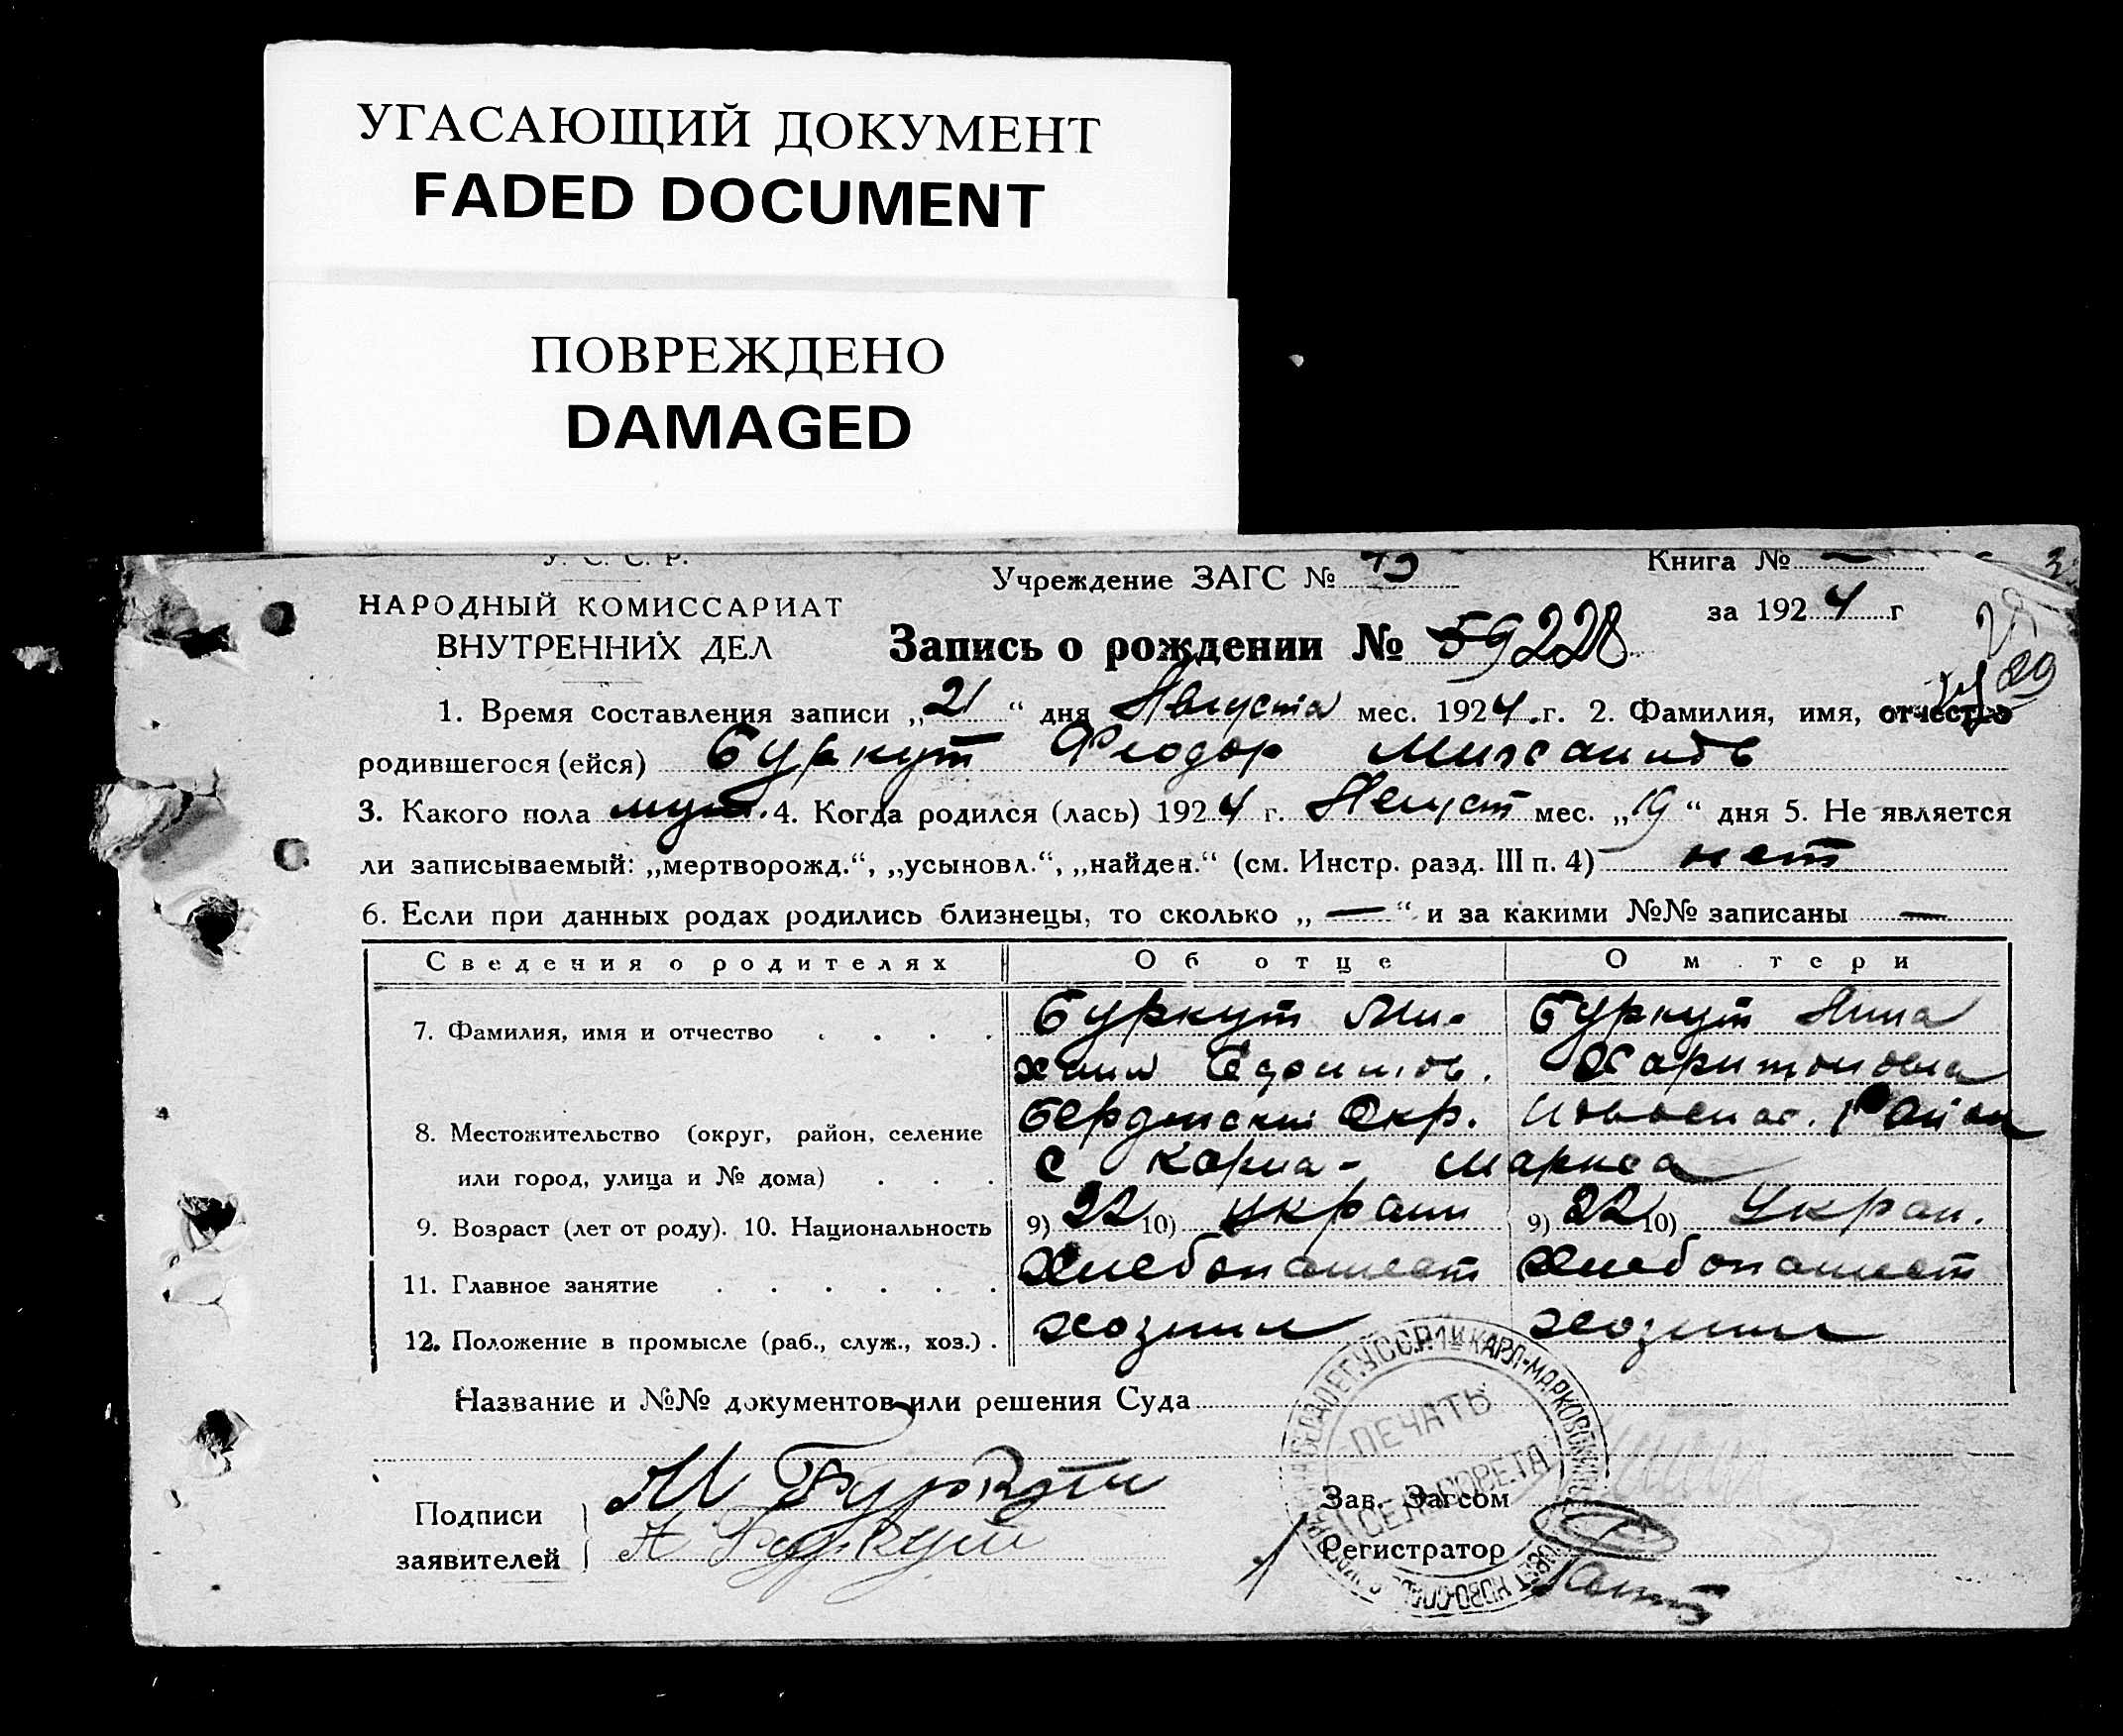 УГАСАЮЩИЙ ДОКУМЕНТ
FADED DOCUMENT
ПОВРЕЖДЕНО
DAMAGED
У. С. С. Р.
Учреждение ЗАГС №
Книга № —
НАРОДНЫЙ КОМИССАРИАТ
за 1924 г
ВНУТРЕННИХ ДЕЛ
Запись о рождении № 59 228
1. Время составления записи „21“ дня Августа мес. 1924 г. 2. Фамилия, имя, отчество
родившегося (ейся) Буркут Феодор Михаилов
3. Какого пола муж. 4. Когда родился (лась) 1924 г. Август мес. „19“ дня 5. Не является
ли записываемый: „мертворожд.“, „усыновл.“, „найден.“ (см. Инстр. разд. III п. 4) нет
6. Если при данных родах родились близнецы, то сколько „—“ и за какими №№ записаны —
Сведения о родителях Об отце О м тери
7. Фамилия, имя и отчество Буркут Ми- Буркут Анна
хаил Харитоновна
8. Местожительство (округ, район, селение Бердянский Окр. Район
или город, улица и № дома) с Карла-Маркса
9. Возраст (лет от роду). 10. Национальность 9) 22 10) Украин 9) 22 10) Украи.
11. Главное занятие Хлебопашест Хлебопашест
12. Положение в промысле (раб., служ., хоз.) хозяин хозяин
Название и №№ документов или решения Суда
ПЕЧАТЬ
СЕЛЬСОВЕТА
Подписи М Буркут
Зав. Загсом
заявителей А Буркут
Регистратор